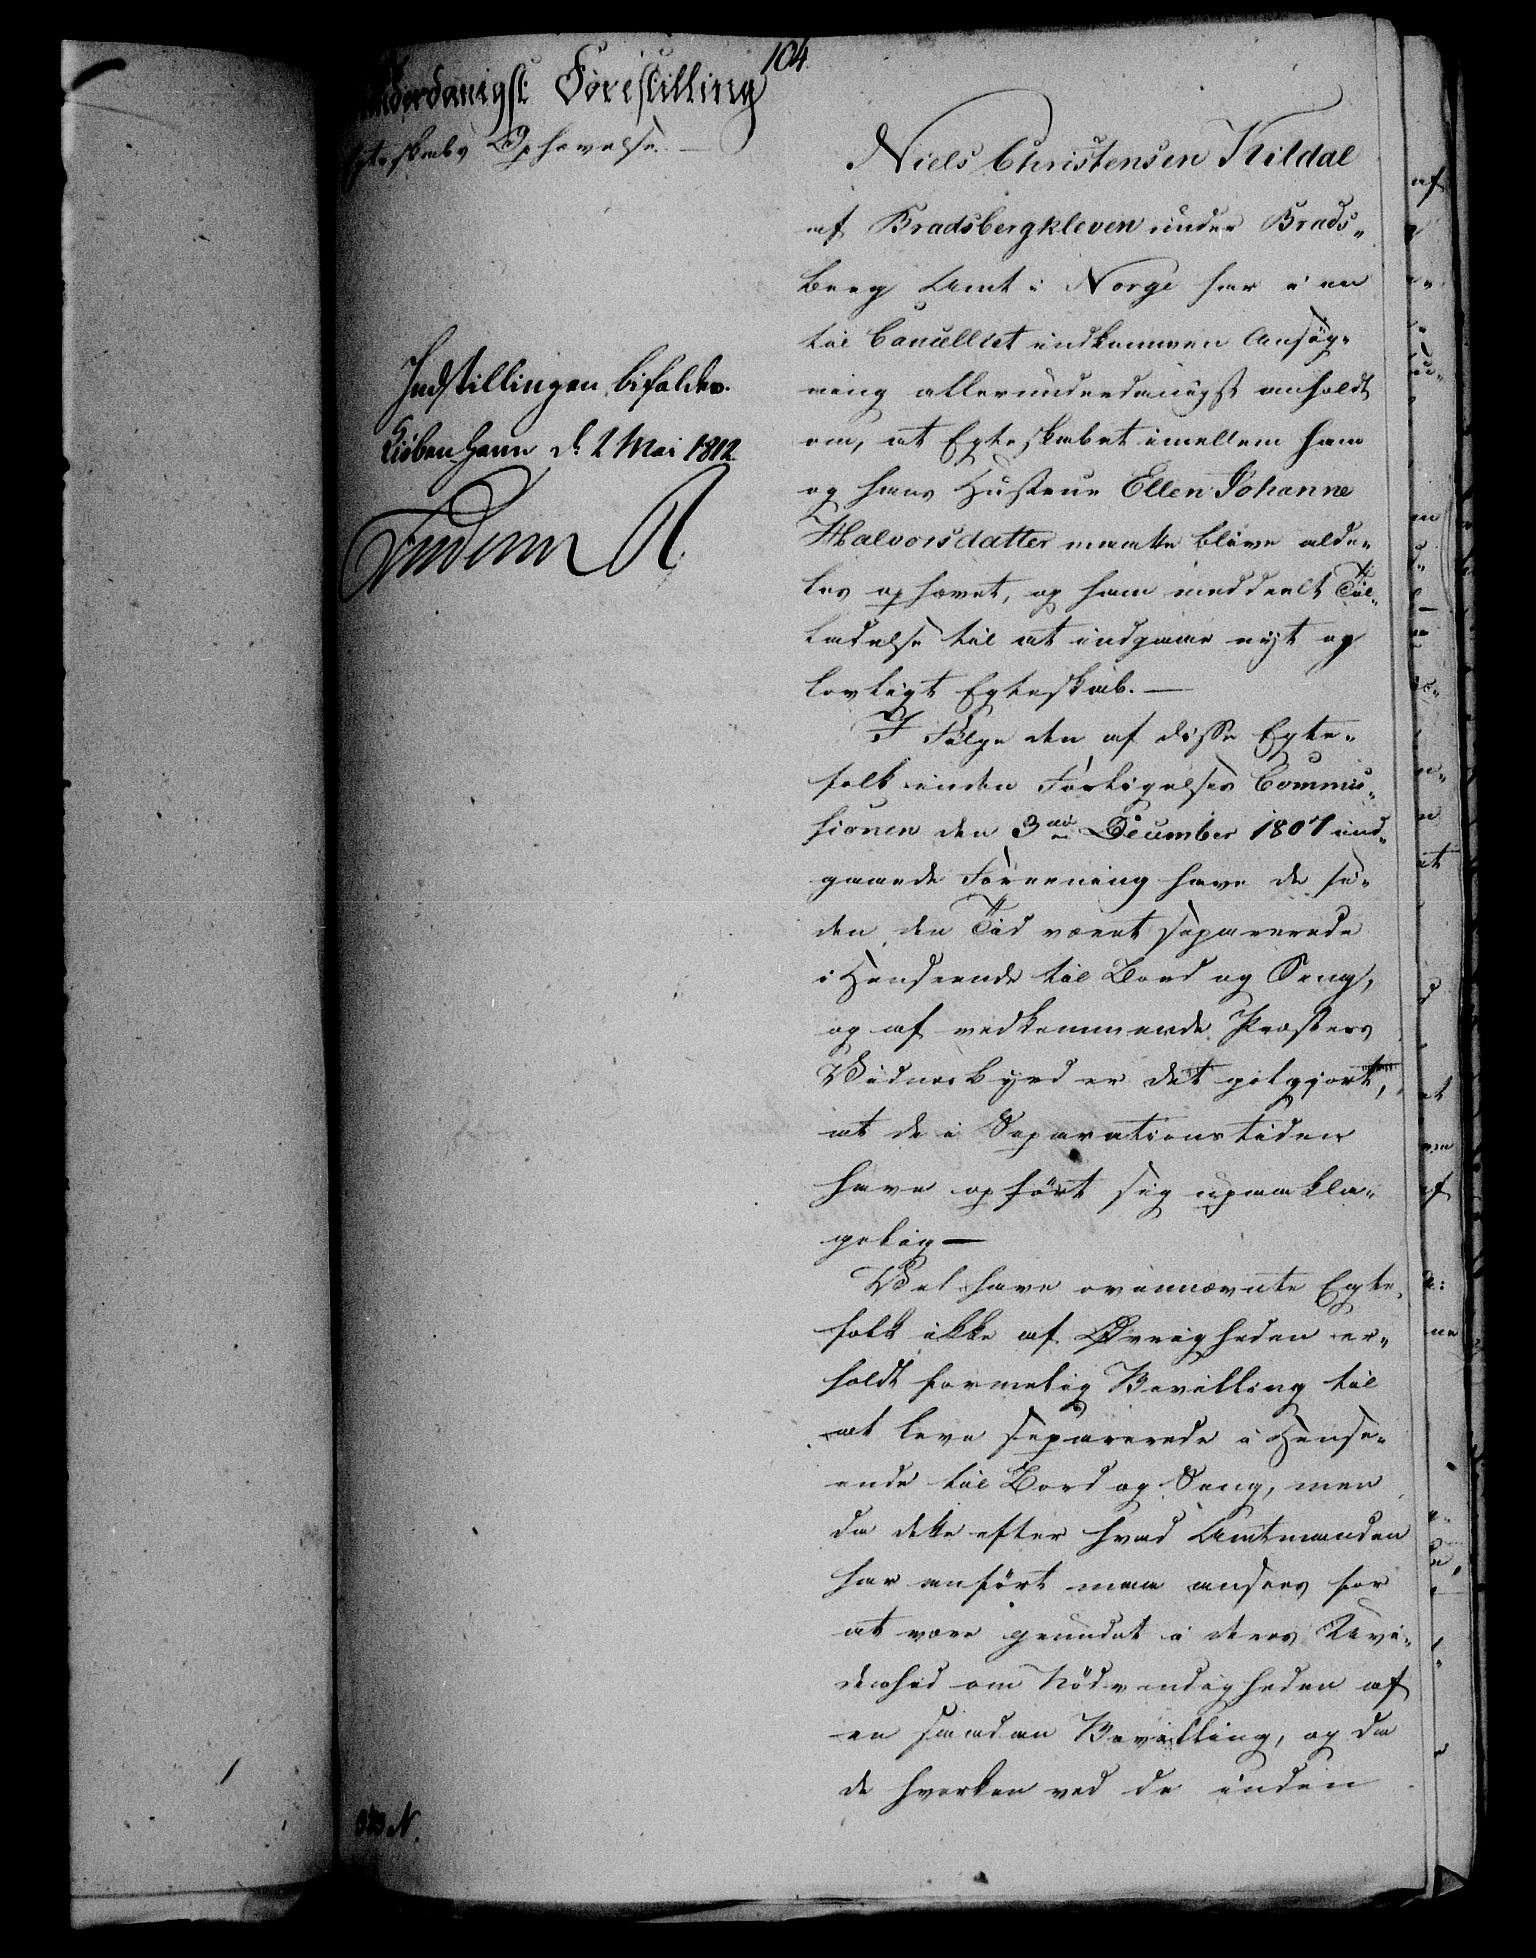 104.
underdanigst Forestilling
Egteskabs Ophævelse. —
Indstillingen bifaldes.
Kiöbenhavn d. 2 Mai 1812
Frederik R
Niels Christensen Kildal
af Bradsbergkleven under Brads„
berg Amt i Norge har i en
til Cancelliet indkommen Ansøg„
ning allerunderdanigst anholdt
om, at Egteskabet imellem ham
og hans Hustrue Ellen Johanne
Halvorsdatter maatte blive alde„
les ophævet, og ham meddeelt Til„
ladelse til at indgaae nyt og
lovligt Egteskab. —
I Følge den af disse Egte„
folk inden Forligelses Commis„
sionen den 3die December 1807 ind„
gaaede Foreening have de si„
den den Tid været separerede
i Henseende til Bord og Seng,
og af vedkommende Præsters
Vidnesbyrd er det godtgjort,
at de i Separationstiden
have opført sig upaakla„
gelig —
Vel have ovennævnte Egte„
folk ikke af Øvrigheden er„
holdt formelig Bevilling til
at leve separerede i Hense„
ende til Bord og Seng, men
da dette efter hvad Amtmanden
har anført maa ansees for
at være grundet i deres Uvi„
denhed om Nödvendigheden af
en saadan Bevilling, og da
de hverken ved de inden